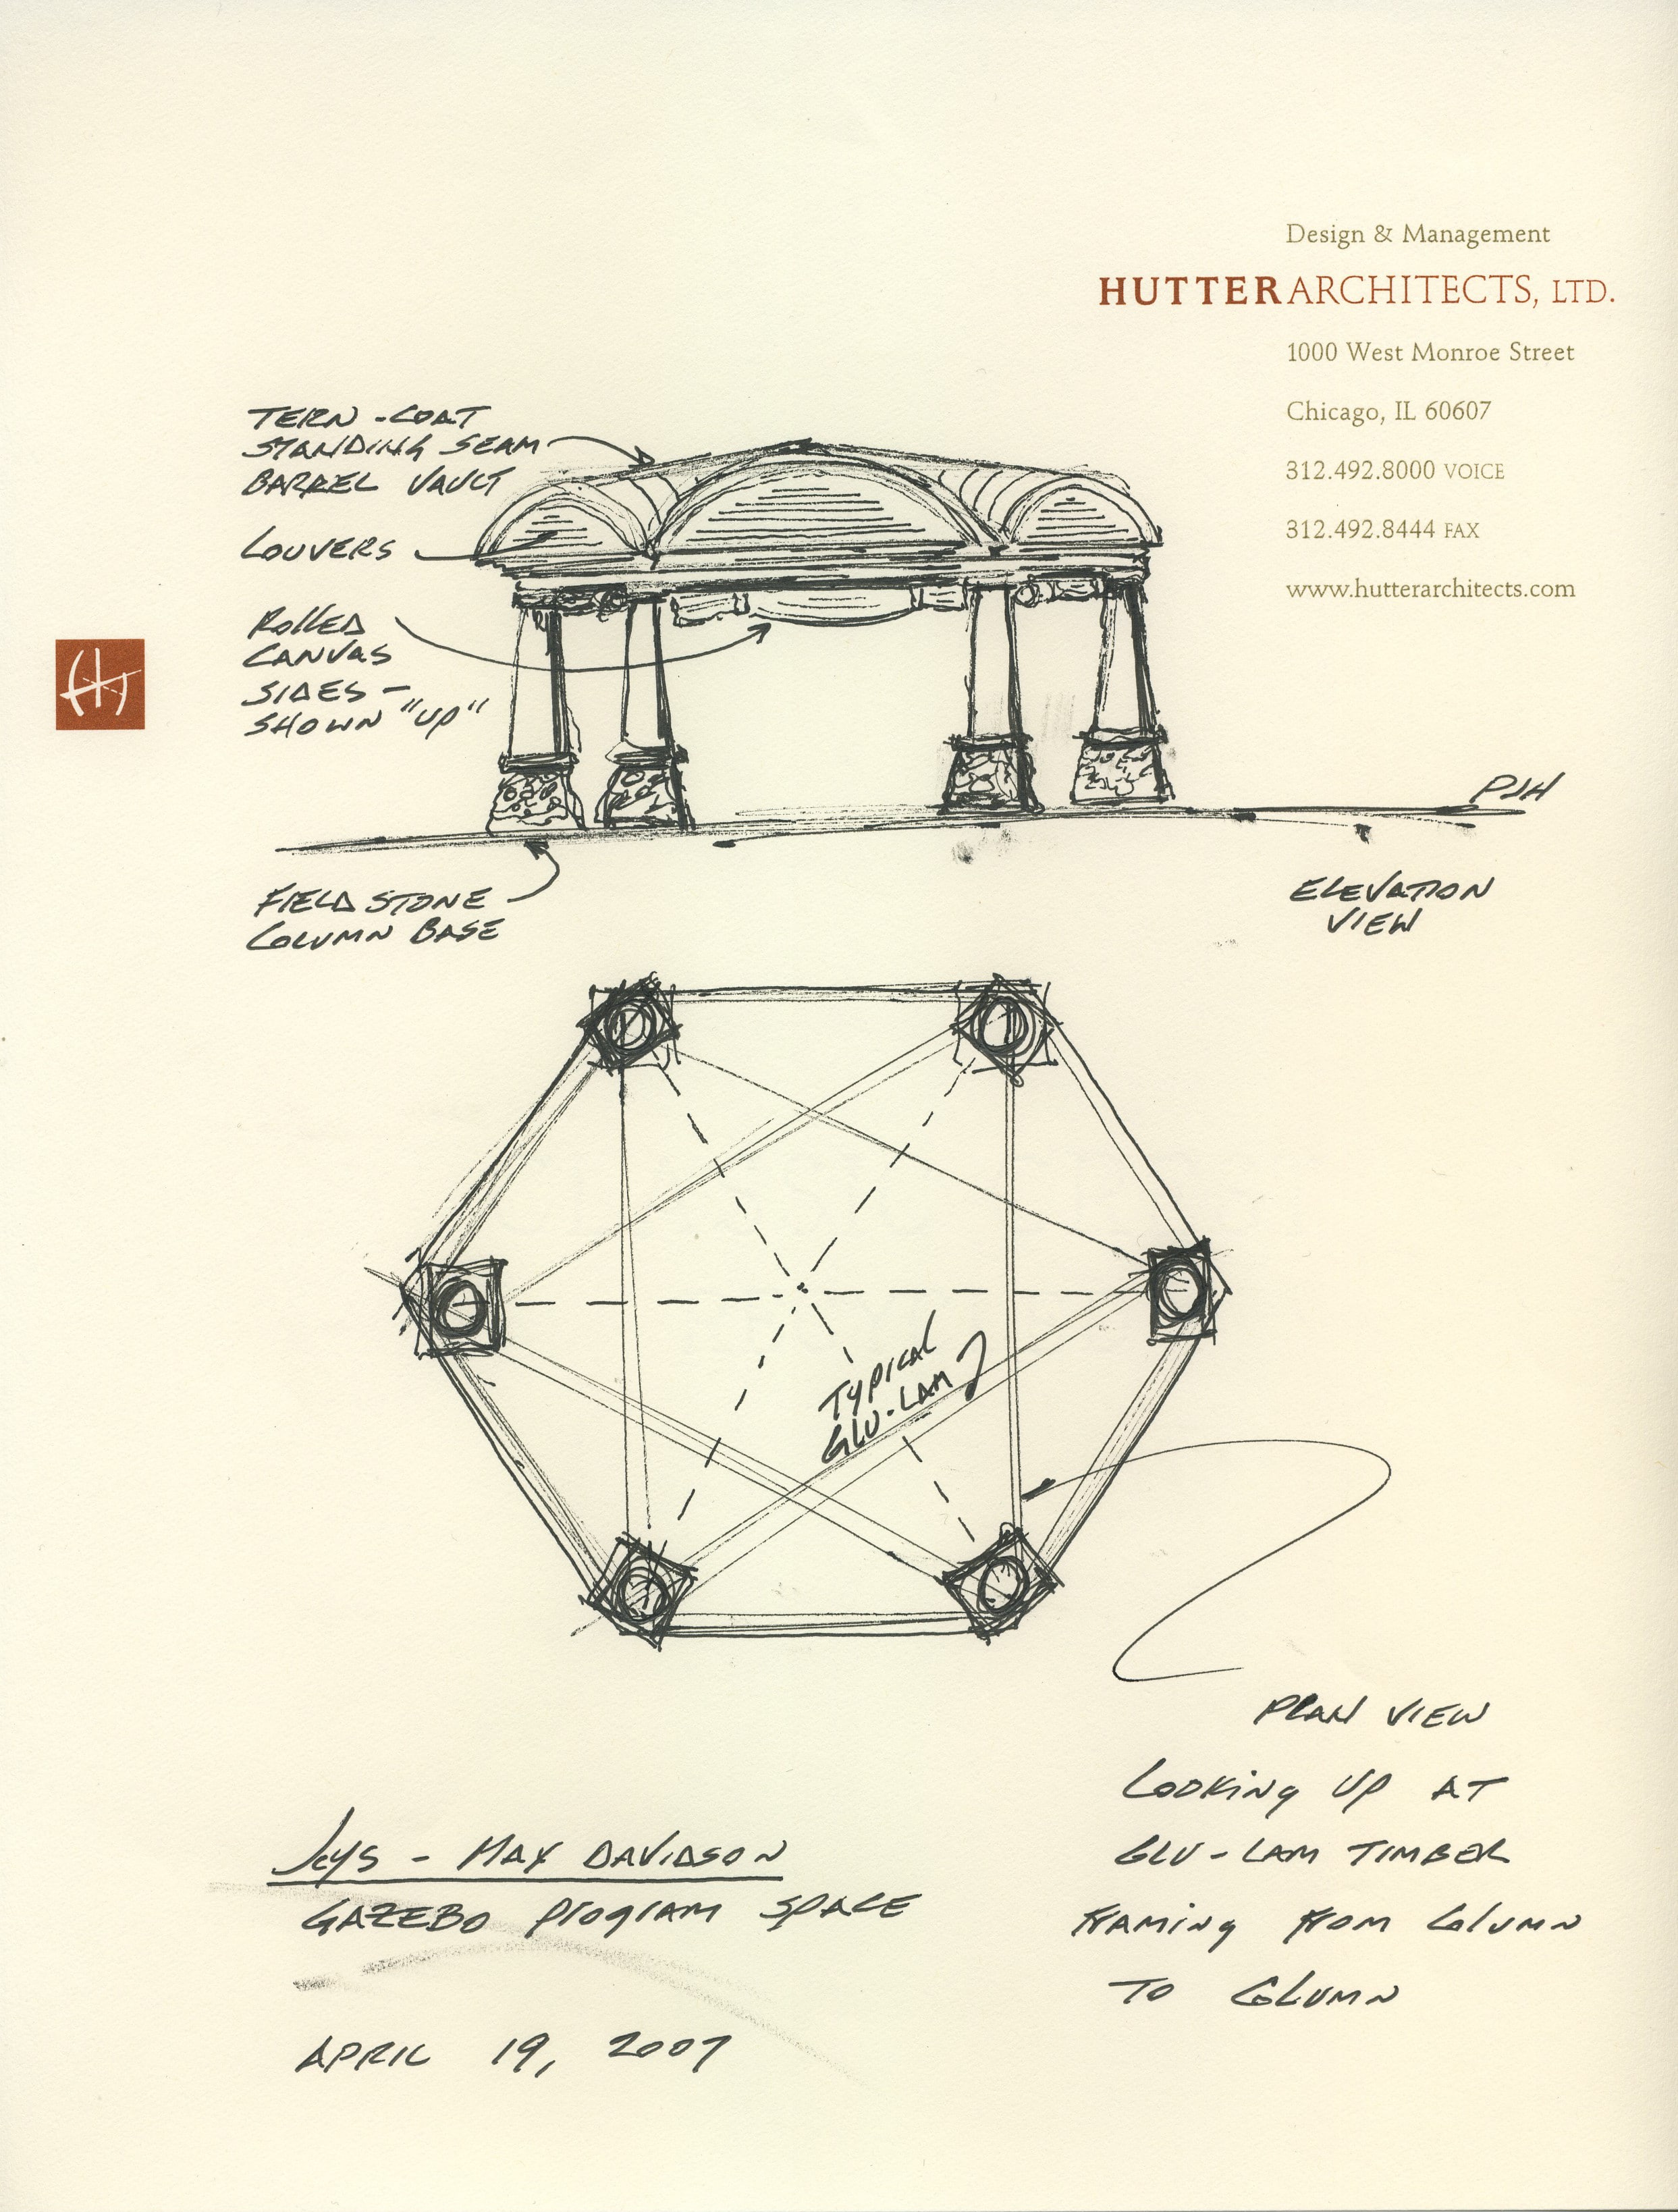 Design & Management
HUTTERARCHITECTS, LTD.
1000 West Monroe Street
Chicago, IL 60607
312.492.8000 VOICE
312.492.8444 FAX
www.hutterarchitects.com
TERN-COAT
STANDING SEAM
BARREL VAULT
LOUVERS
Rolled
CANVAS
SIDES -
SHOWN "UP"
PJH
FIELD STONE
COLUMN BASE
ELEVATION
VIEW
TYPICAL
GLU-LAM
PLAN VIEW
LOOKING UP AT
GLU-LAM TIMBER
FRAMING FROM COLUMN
TO COLUMN
- MAX DAVIDSON
GAZEBO PROGRAM SPACE
APRIL 19, 2007